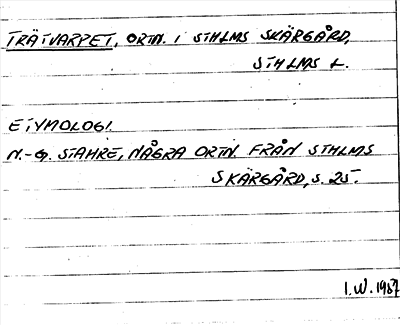 TRÄTVARPET, ORTN. I STHLMS SKÄRGÅRD,
STHLMS L.
ETYMOLOGI.
N.-G. STAHRE, NÅGRA ORTN. FRÅN STHLMS
SKÄRGÅRD, S. 25.
I.W. 1987